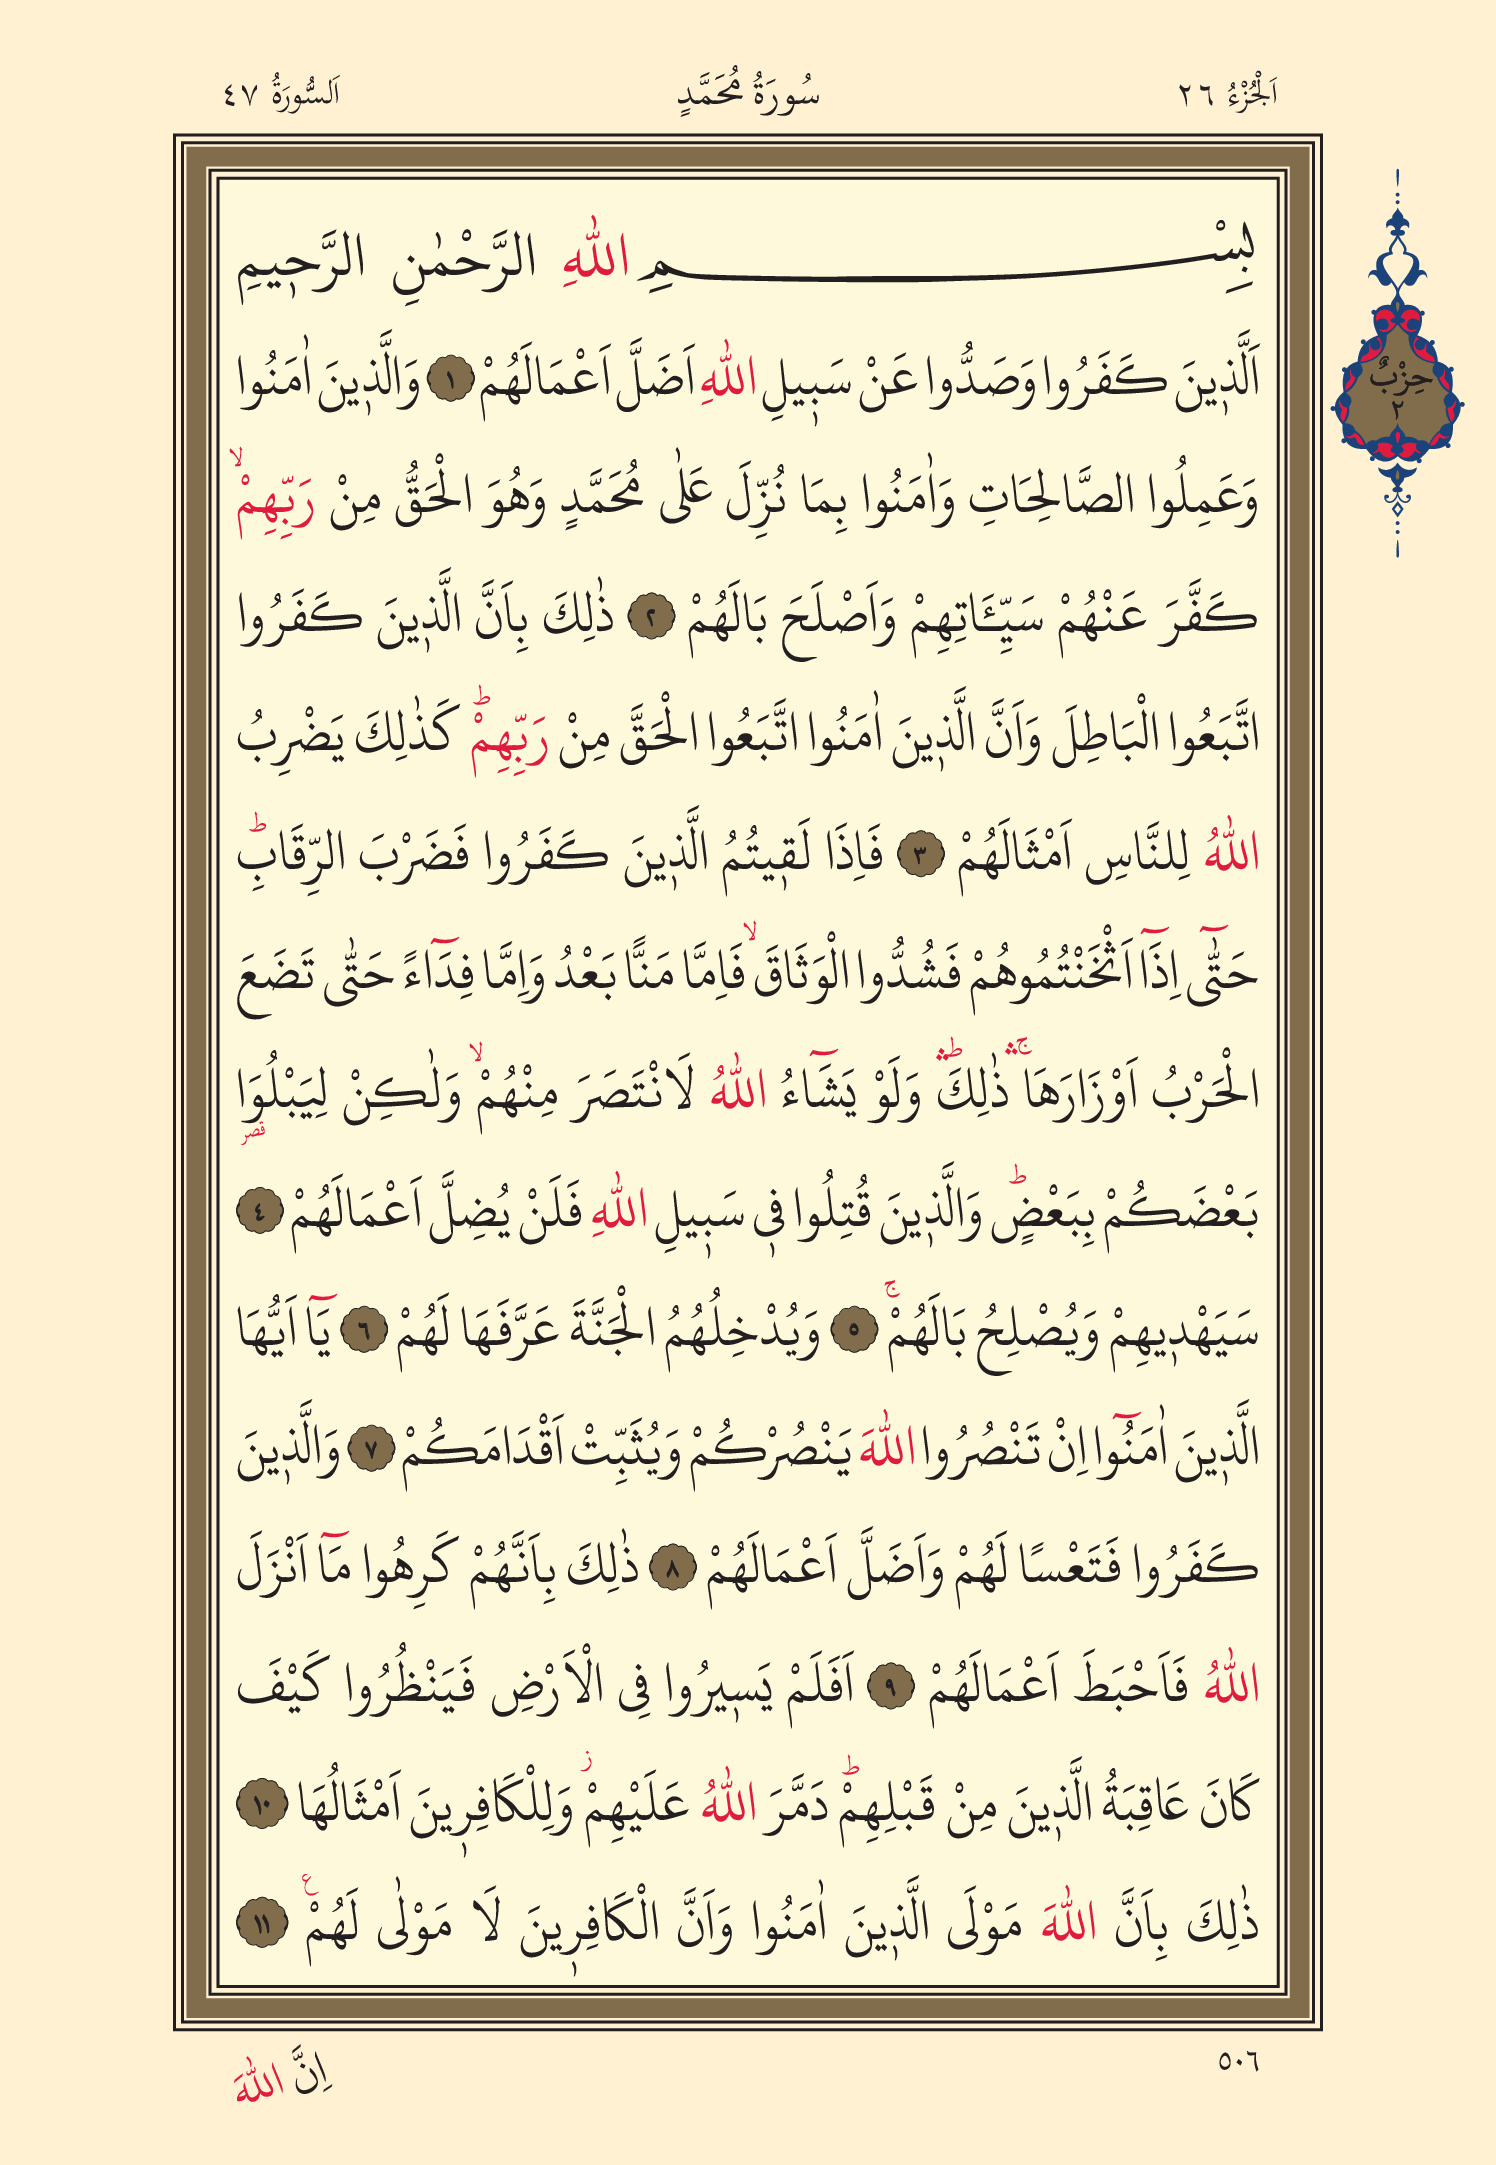 اَلْجُزْءُ ٢٦
سُورَةُ مُحَمَّدٍ
اَلسُّورَةُ ٤٧
حِزْبٌ
٢
بِسْمِ اللّٰهِ الرَّحْمٰنِ الرَّح۪يمِ
اَلَّذ۪ينَ كَفَرُوا وَصَدُّوا عَنْ سَب۪يلِ اللّٰهِ اَضَلَّ اَعْمَالَهُمْ ١ وَالَّذ۪ينَ اٰمَنُوا
وَعَمِلُوا الصَّالِحَاتِ وَاٰمَنُوا بِمَا نُزِّلَ عَلٰى مُحَمَّدٍ وَهُوَ الْحَقُّ مِنْ رَبِّهِمْۙ
كَفَّرَ عَنْهُمْ سَيِّـَٔاتِهِمْ وَاَصْلَحَ بَالَهُمْ ٢ ذٰلِكَ بِاَنَّ الَّذ۪ينَ كَفَرُوا
اتَّبَعُوا الْبَاطِلَ وَاَنَّ الَّذ۪ينَ اٰمَنُوا اتَّبَعُوا الْحَقَّ مِنْ رَبِّهِمْۜ كَذٰلِكَ يَضْرِبُ
اللّٰهُ لِلنَّاسِ اَمْثَالَهُمْ ٣ فَاِذَا لَق۪يتُمُ الَّذ۪ينَ كَفَرُوا فَضَرْبَ الرِّقَابِۜ
حَتّٰٓى اِذَٓا اَثْخَنْتُمُوهُمْ فَشُدُّوا الْوَثَاقَۙ فَاِمَّا مَنًّا بَعْدُ وَاِمَّا فِدَٓاءً حَتّٰى تَضَعَ
الْحَرْبُ اَوْزَارَهَاۚۛ ذٰلِكَۜۛ وَلَوْ يَشَٓاءُ اللّٰهُ لَانْتَصَرَ مِنْهُمْۙ وَلٰكِنْ لِيَبْلُوَا۬ قصر
بَعْضَكُمْ بِبَعْضٍۜ وَالَّذ۪ينَ قُتِلُوا ف۪ي سَب۪يلِ اللّٰهِ فَلَنْ يُضِلَّ اَعْمَالَهُمْ ٤
سَيَهْد۪يهِمْ وَيُصْلِحُ بَالَهُمْۚ ٥ وَيُدْخِلُهُمُ الْجَنَّةَ عَرَّفَهَا لَهُمْ ٦ يَٓا اَيُّهَا
الَّذ۪ينَ اٰمَنُٓوا اِنْ تَنْصُرُوا اللّٰهَ يَنْصُرْكُمْ وَيُثَبِّتْ اَقْدَامَكُمْ ٧ وَالَّذ۪ينَ
كَفَرُوا فَتَعْسًا لَهُمْ وَاَضَلَّ اَعْمَالَهُمْ ٨ ذٰلِكَ بِاَنَّهُمْ كَرِهُوا مَٓا اَنْزَلَ
اللّٰهُ فَاَحْبَطَ اَعْمَالَهُمْ ٩ اَفَلَمْ يَس۪يرُوا فِي الْاَرْضِ فَيَنْظُرُوا كَيْفَ
كَانَ عَاقِبَةُ الَّذ۪ينَ مِنْ قَبْلِهِمْۜ دَمَّرَ اللّٰهُ عَلَيْهِمْۘ وَلِلْكَافِر۪ينَ اَمْثَالُهَا ١٠
ذٰلِكَ بِاَنَّ اللّٰهَ مَوْلَى الَّذ۪ينَ اٰمَنُوا وَاَنَّ الْكَافِر۪ينَ لَا مَوْلٰى لَهُمْ ع ١١
٥٠٦
اِنَّ اللّٰهَ